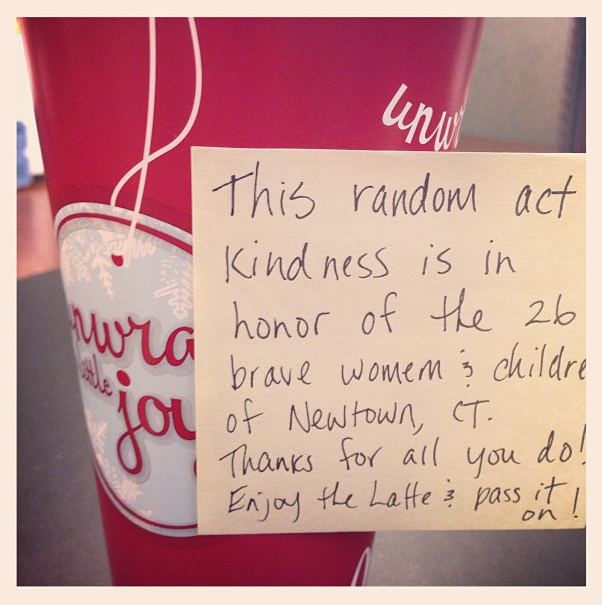 unwr
unwra
little
joy
This random act
Kindness is in
honor of the 26
brave womem & childre
of Newtown, CT.
Thanks for all you do!
Enjoy the Latte & pass it
on!